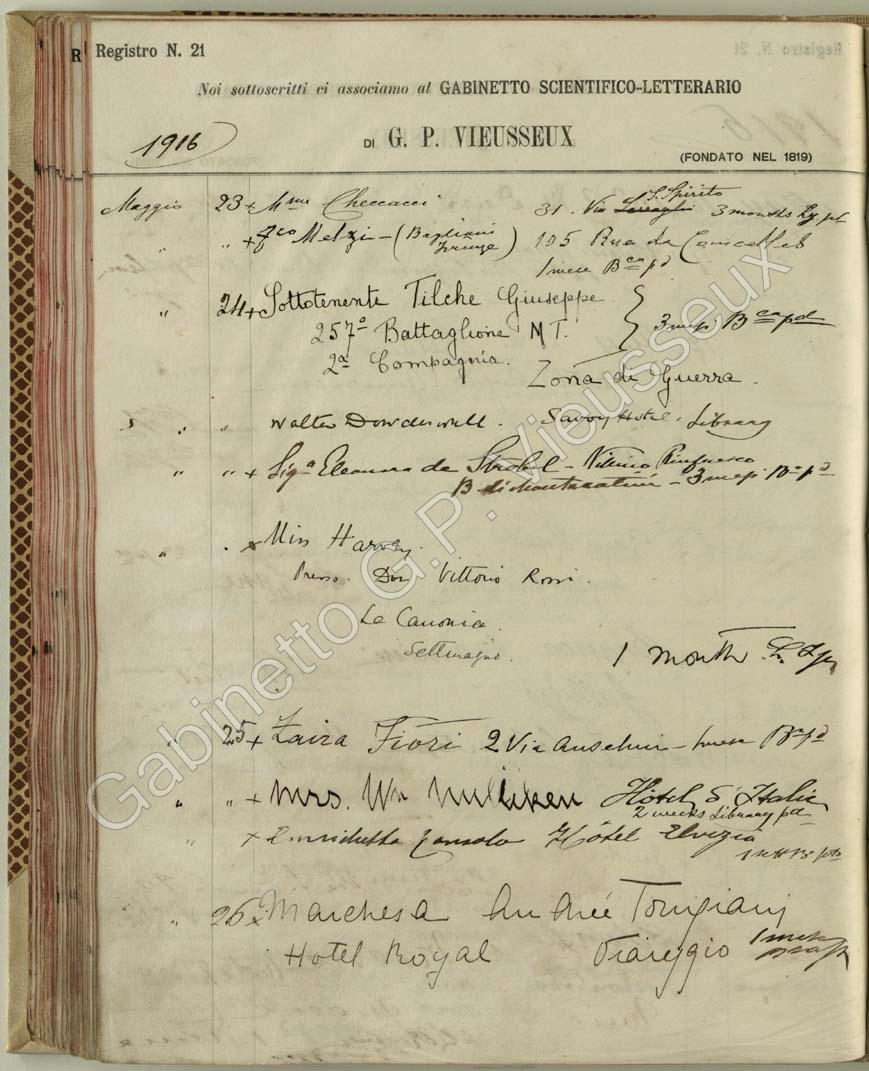 R Registro N. 21
Noi sottoscritti ci associamo al GABINETTO SCIENTIFICO-LETTERARIO
1916
DI G. P. VIEUSSEUX
(FONDATO NEL 1819)
Maggio 23 + Mme Checcacci 31. Via S. Spirito 3 months pd
" " + Melzi - ( ) 105 Rue
Firenze
1 mese Bca pd
" 24 + Sottotenente Tilche Giuseppe
257° Battaglione M T. 3 mesi Bca pd
2a Compagnia.
Zona di Guerra.
" " Walter Dowdeswell. Savoy Hotel. Library
" " + Sigra Eleonora de Strobel -
B - 3 mesi Ba pd
" " x Miss Harvey.
Presso. Don Vittorio Rossi.
La Canonica.
Settimagno.
1 month
" 25 + Zaira Fiori 2 Via Anselmi - 1 mese Ba pd
" " + Mrs. Wm Milliken Hôtel d'Italie
2 weeks Library pd
" + Enrichetta Hôtel Elvezia
" 26 x Marchesa André Torrigiani
Hotel Royal Viareggio 1 mese
Gabinetto G.P. Vieusseux